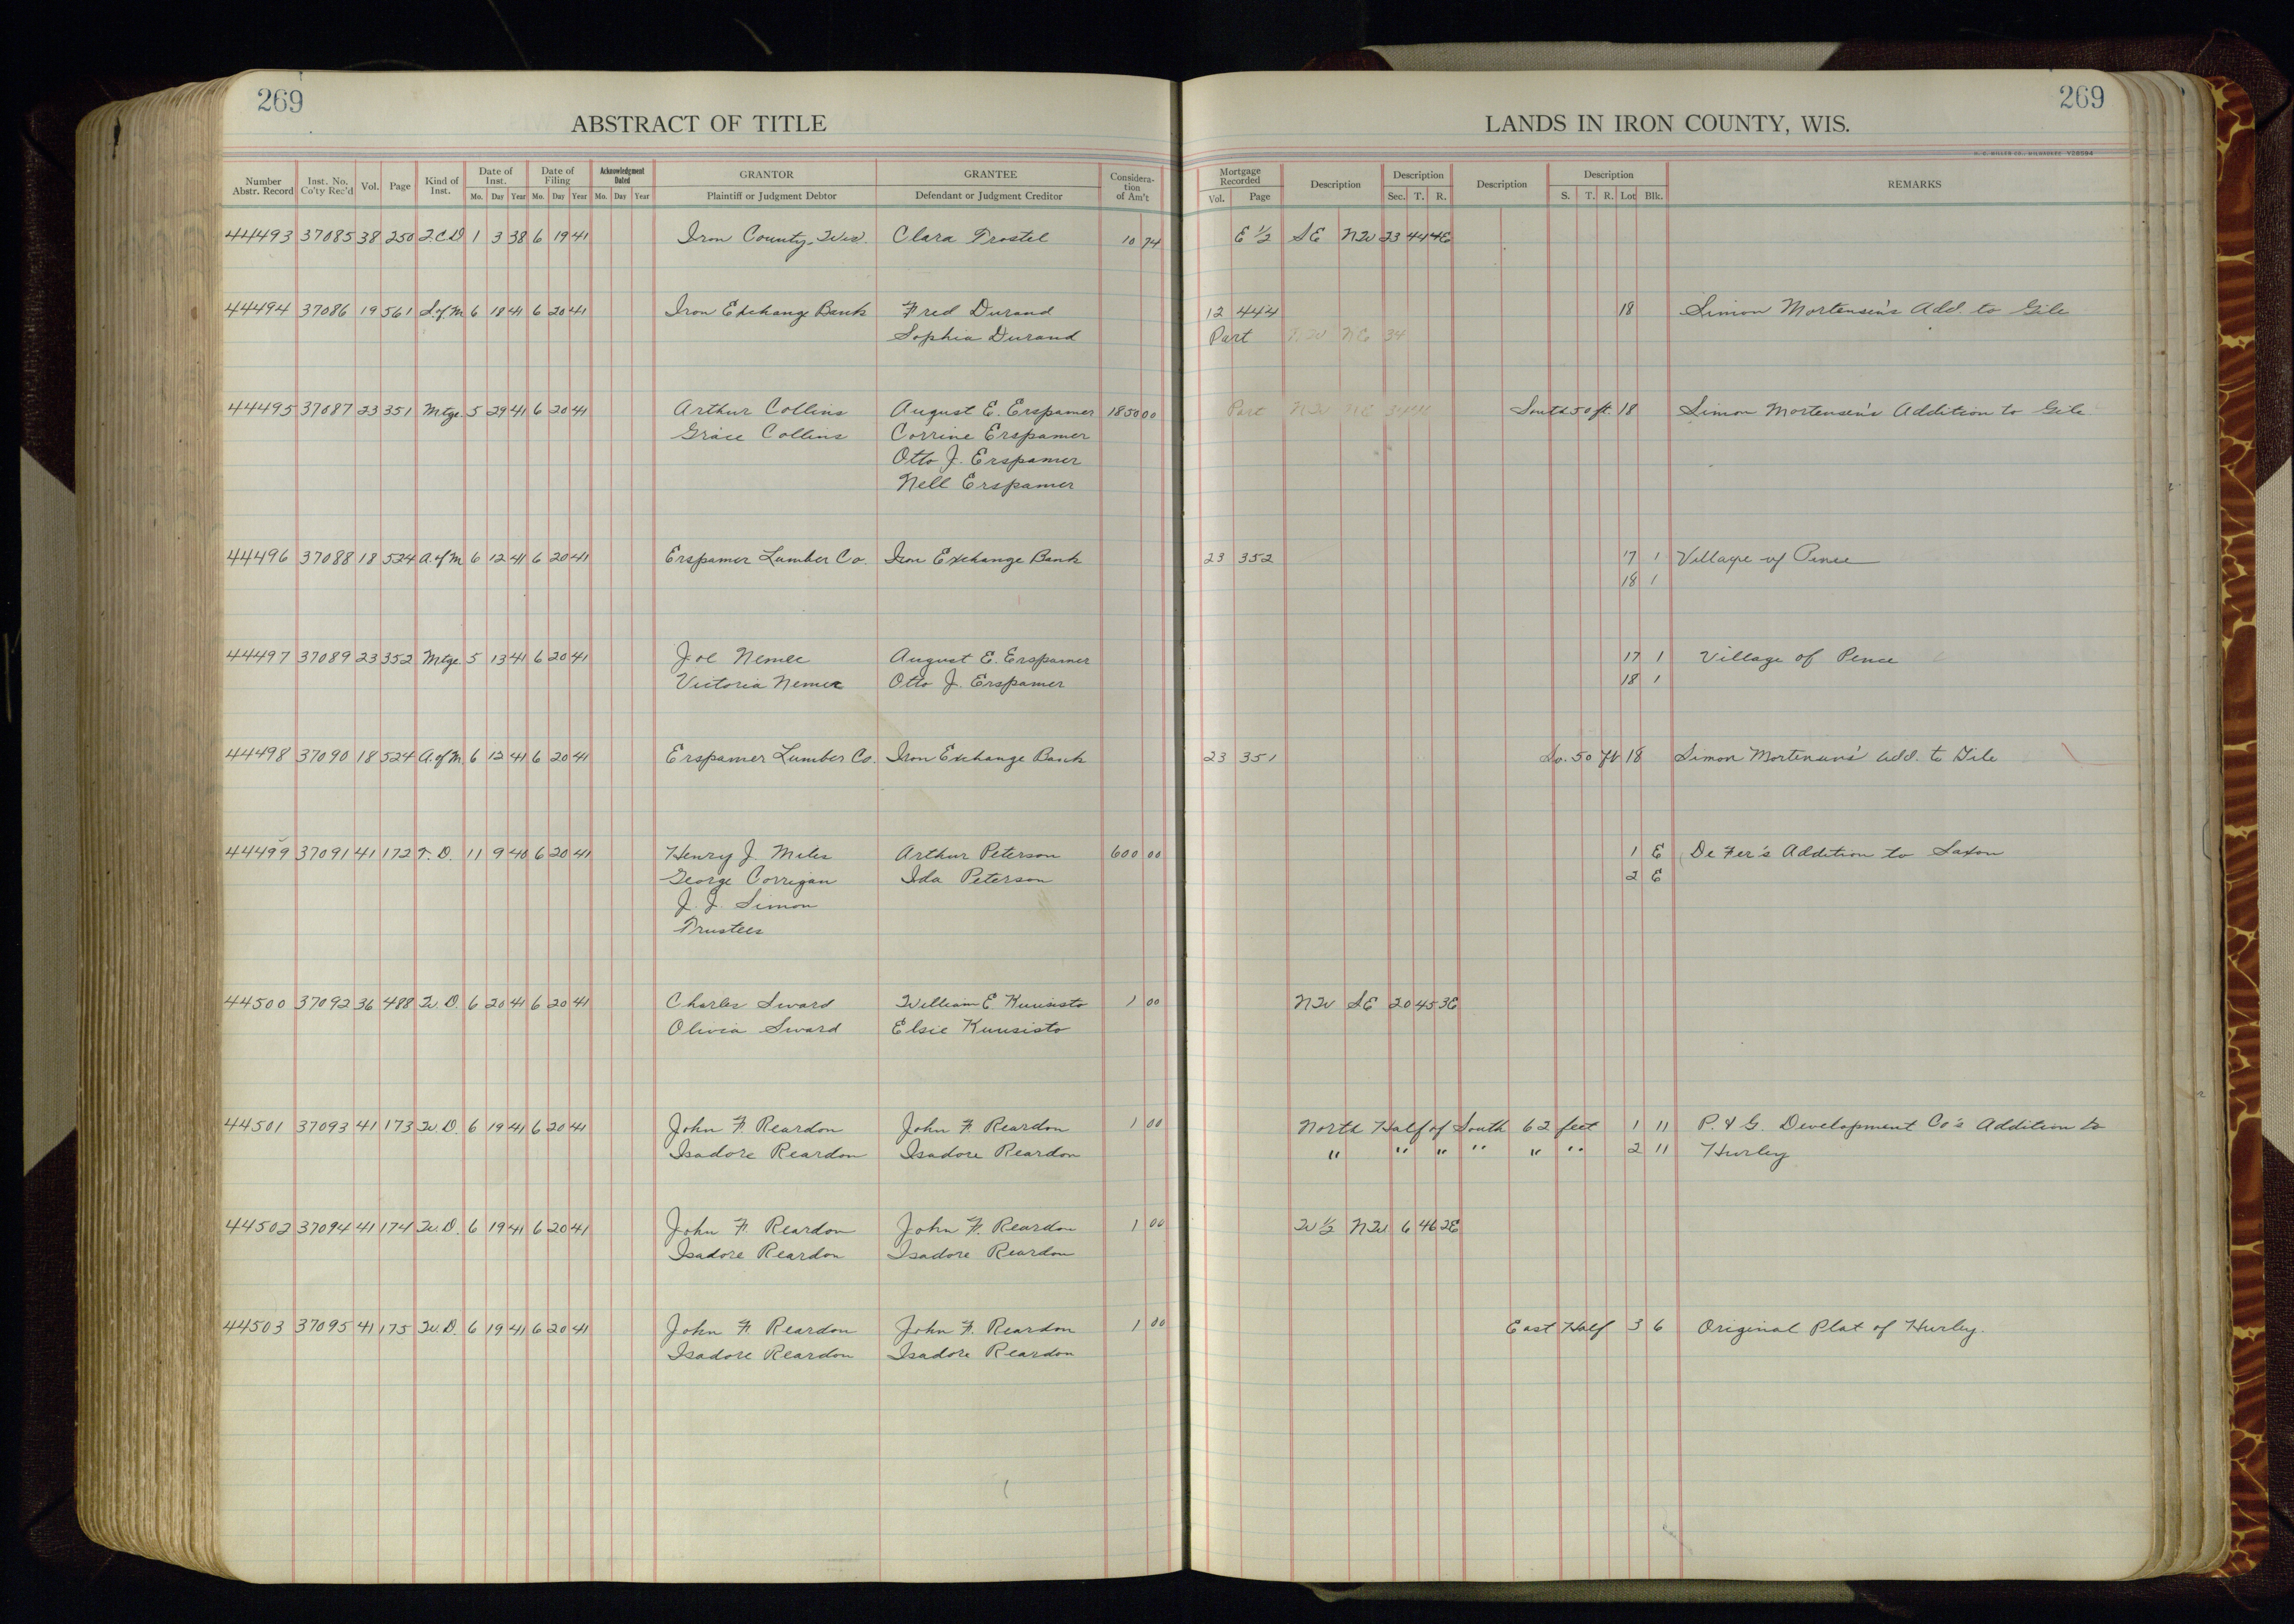 269
ABSTRACT OF TITLE
Number Abstr. Record | Inst. No. Co'ty Rec'd | Vol. | Page | Kind of Inst. | Date of Inst. Mo. Day Year | Date of Filing Mo. Day Year | Acknowledgment Dated Mo. Day Year | GRANTOR Plaintiff or Judgment Debtor | GRANTEE Defendant or Judgment Creditor | Consideration of Am't
269
LANDS IN IRON COUNTY, WIS.
H. C. MILLER CO., MILWAUKEE
Mortgage Recorded Vol. Page | Description | Description Sec. T. R. | Description | Description S. T. R. Lot Blk. | REMARKS
44493 37085 38 250 T.C.D 1 3 38 6 19 41 Iron County, Wis. Clara Trostel 10 74 E 1/2 SE NW 23 44 4E
44494 37086 19 561 S.of M 6 18 41 6 20 41 Iron Exchange Bank Fred Durand 12 444 18 Simon Mortensen's Add. to Gile
Sophia Durand Part NW NE 34
44495 37087 23 351 Mtge. 5 29 41 6 20 41 Arthur Collins August E. Erspamer 1850 00 Part NW NE 34 South 50 ft. 18 Simon Mortensen's Addition to Gile
Grace Collins Corrine Erspamer
Otto J. Erspamer
Nell Erspamer
44496 37088 18 524 A.of M 6 12 41 6 20 41 Erspamer Lumber Co. Iron Exchange Bank 23 352 17 1 Village of Pence
18 1
44497 37089 23 352 Mtge. 5 13 41 6 20 41 Joe Nemec August E. Erspamer 17 1 Village of Pence
Victoria Nemec Otto J. Erspamer 18 1
44498 37090 18 524 A.of M. 6 12 41 6 20 41 Erspamer Lumber Co. Iron Exchange Bank 23 351 So. 50 ft 18 Simon Mortensen's Add. to Gile
44499 37091 41 172 T.D. 11 9 40 6 20 41 Henry J. Meles Arthur Peterson 600 00 1 E De Fer's Addition to Saxon
George Corrigan Ida Peterson 2 E
J. J. Simon
Trustees
44500 37092 36 488 W.D. 6 20 41 6 20 41 Charles Sward William E. Kuusisto 1 00 NW SE 20 45 3E
Olivia Sward Elsie Kuusisto
44501 37093 41 173 W.D. 6 19 41 6 20 41 John F. Reardon John F. Reardon 1 00 North Half of South 62 feet 1 11 P. & G. Development Co's Addition to
Isadore Reardon Isadore Reardon " " " " " " 2 11 Hurley
44502 37094 41 174 W.D. 6 19 41 6 20 41 John F. Reardon John F. Reardon 1 00 W 1/2 NW 6 46 2E
Isadore Reardon Isadore Reardon
44503 37095 41 175 W.D. 6 19 41 6 20 41 John F. Reardon John F. Reardon 1 00 East Half 3 6 Original Plat of Hurley.
Isadore Reardon Isadore Reardon